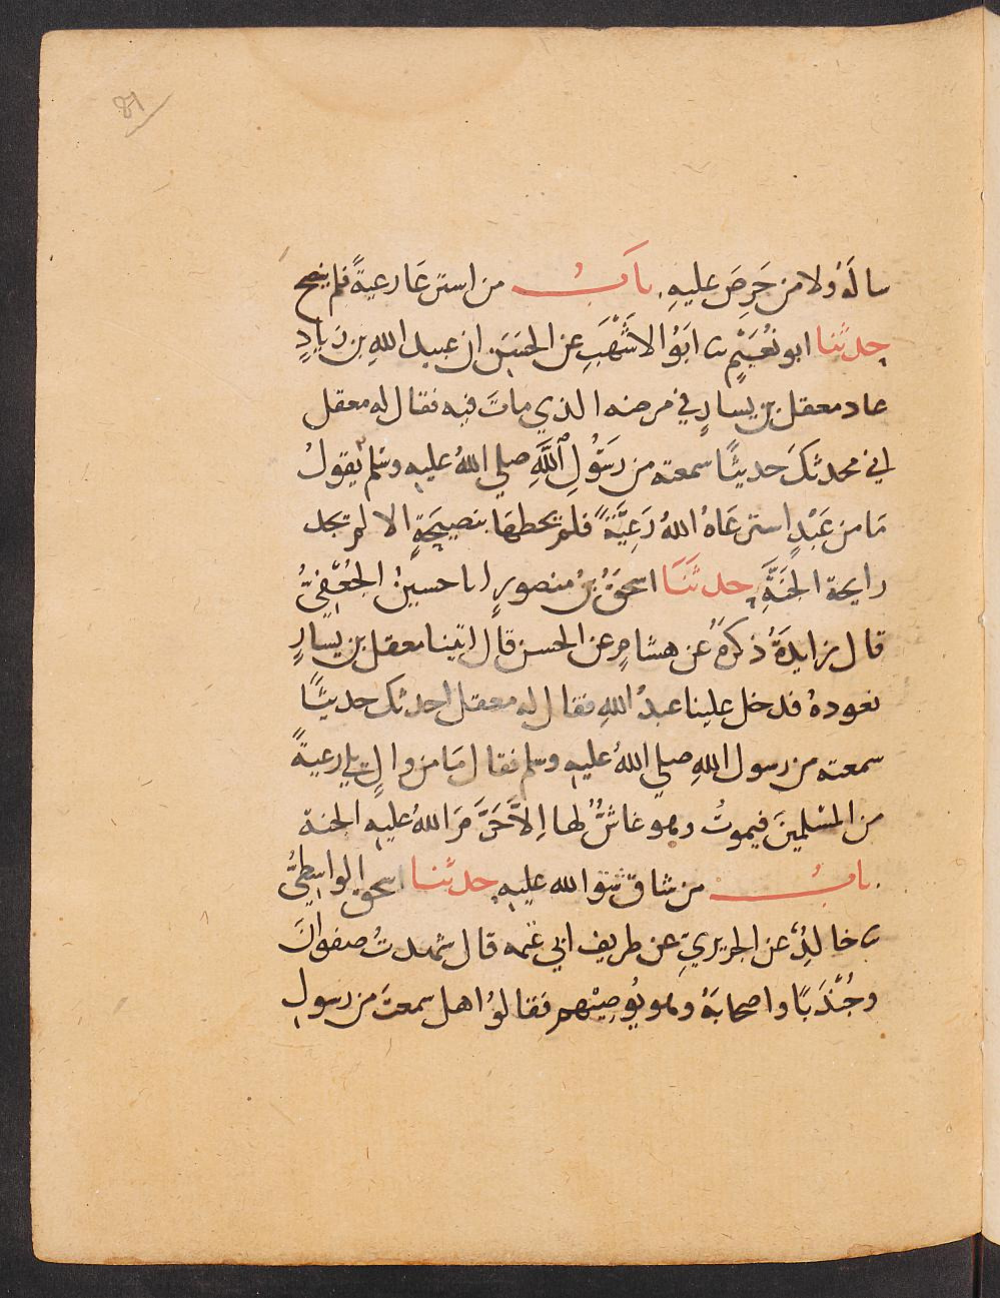 سالهُ ولا من حَرِصَ عليهِ. بابُ من استرعَا رعيةً فلم ينصح
حدثنا ابو نُعَيْمٍ ثنا ابَوُ الاشْهَبِ عن الحسَن ان عبيد اللهِ بن زيادٍ
عاد معقل بن يسارٍ في مرضه الذي ماتَ فيه فقال له معقل
اني محدثكَ حديثًا سمعته من رسَوُلِ اللهِ صلي اللهُ عليهِ وسلم يقولُ
مَا من عَبْدٍ استرعَاهُ اللهُ رَعِيَّةً فلم يحطهَا بنصيحَةٍ الا لم تجد
رايحة الجنَّةِ حدثَنَا اسحقُ بنُ منصورٍ انا حسينُ الجُعْفِيُّ
قال زايدَةُ ذكرهُ عن هشامٍ عن الحسن قال اتينا معقل بن يسارٍ
نعودهُ فدخل علينا عبدُ اللهِ فقال له معقل احدثك حديثًا
سمعته من رسول اللهِ صلي اللهُ عليهِ وسلم فقال مَا من والٍ يلي رعيةً
من المسْلمينَ فيموتُ وهو غاشٌّ لها اِلاَّ حَرَّمَ اللهُ عليهِ الجنة
بابُ من شاق شق الله عليهِ حدثنا اسحق الواسطيُّ
ثنا خالدٌ عن الجريريّ عن طريف ابي تميمه قال شهدتُ صفوانَ
وجُنْدَبًا واصحابَهُ وهو يُوصِيْهم فقالوُا هل سمعتَ من رسولِ